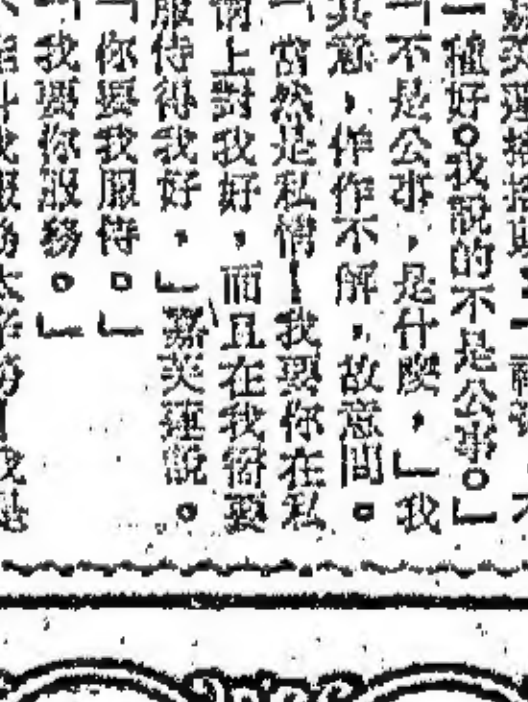 一種好。我說的不是公事。」
「不是公事，是什麼，」我
其意，佯作不解，故意問。
「當然是私情—我要你在私
情上對我好，而且在我需要
服侍得我好，」嘉芙蓮說。
「你要我服侍。」
「我要你服務。」